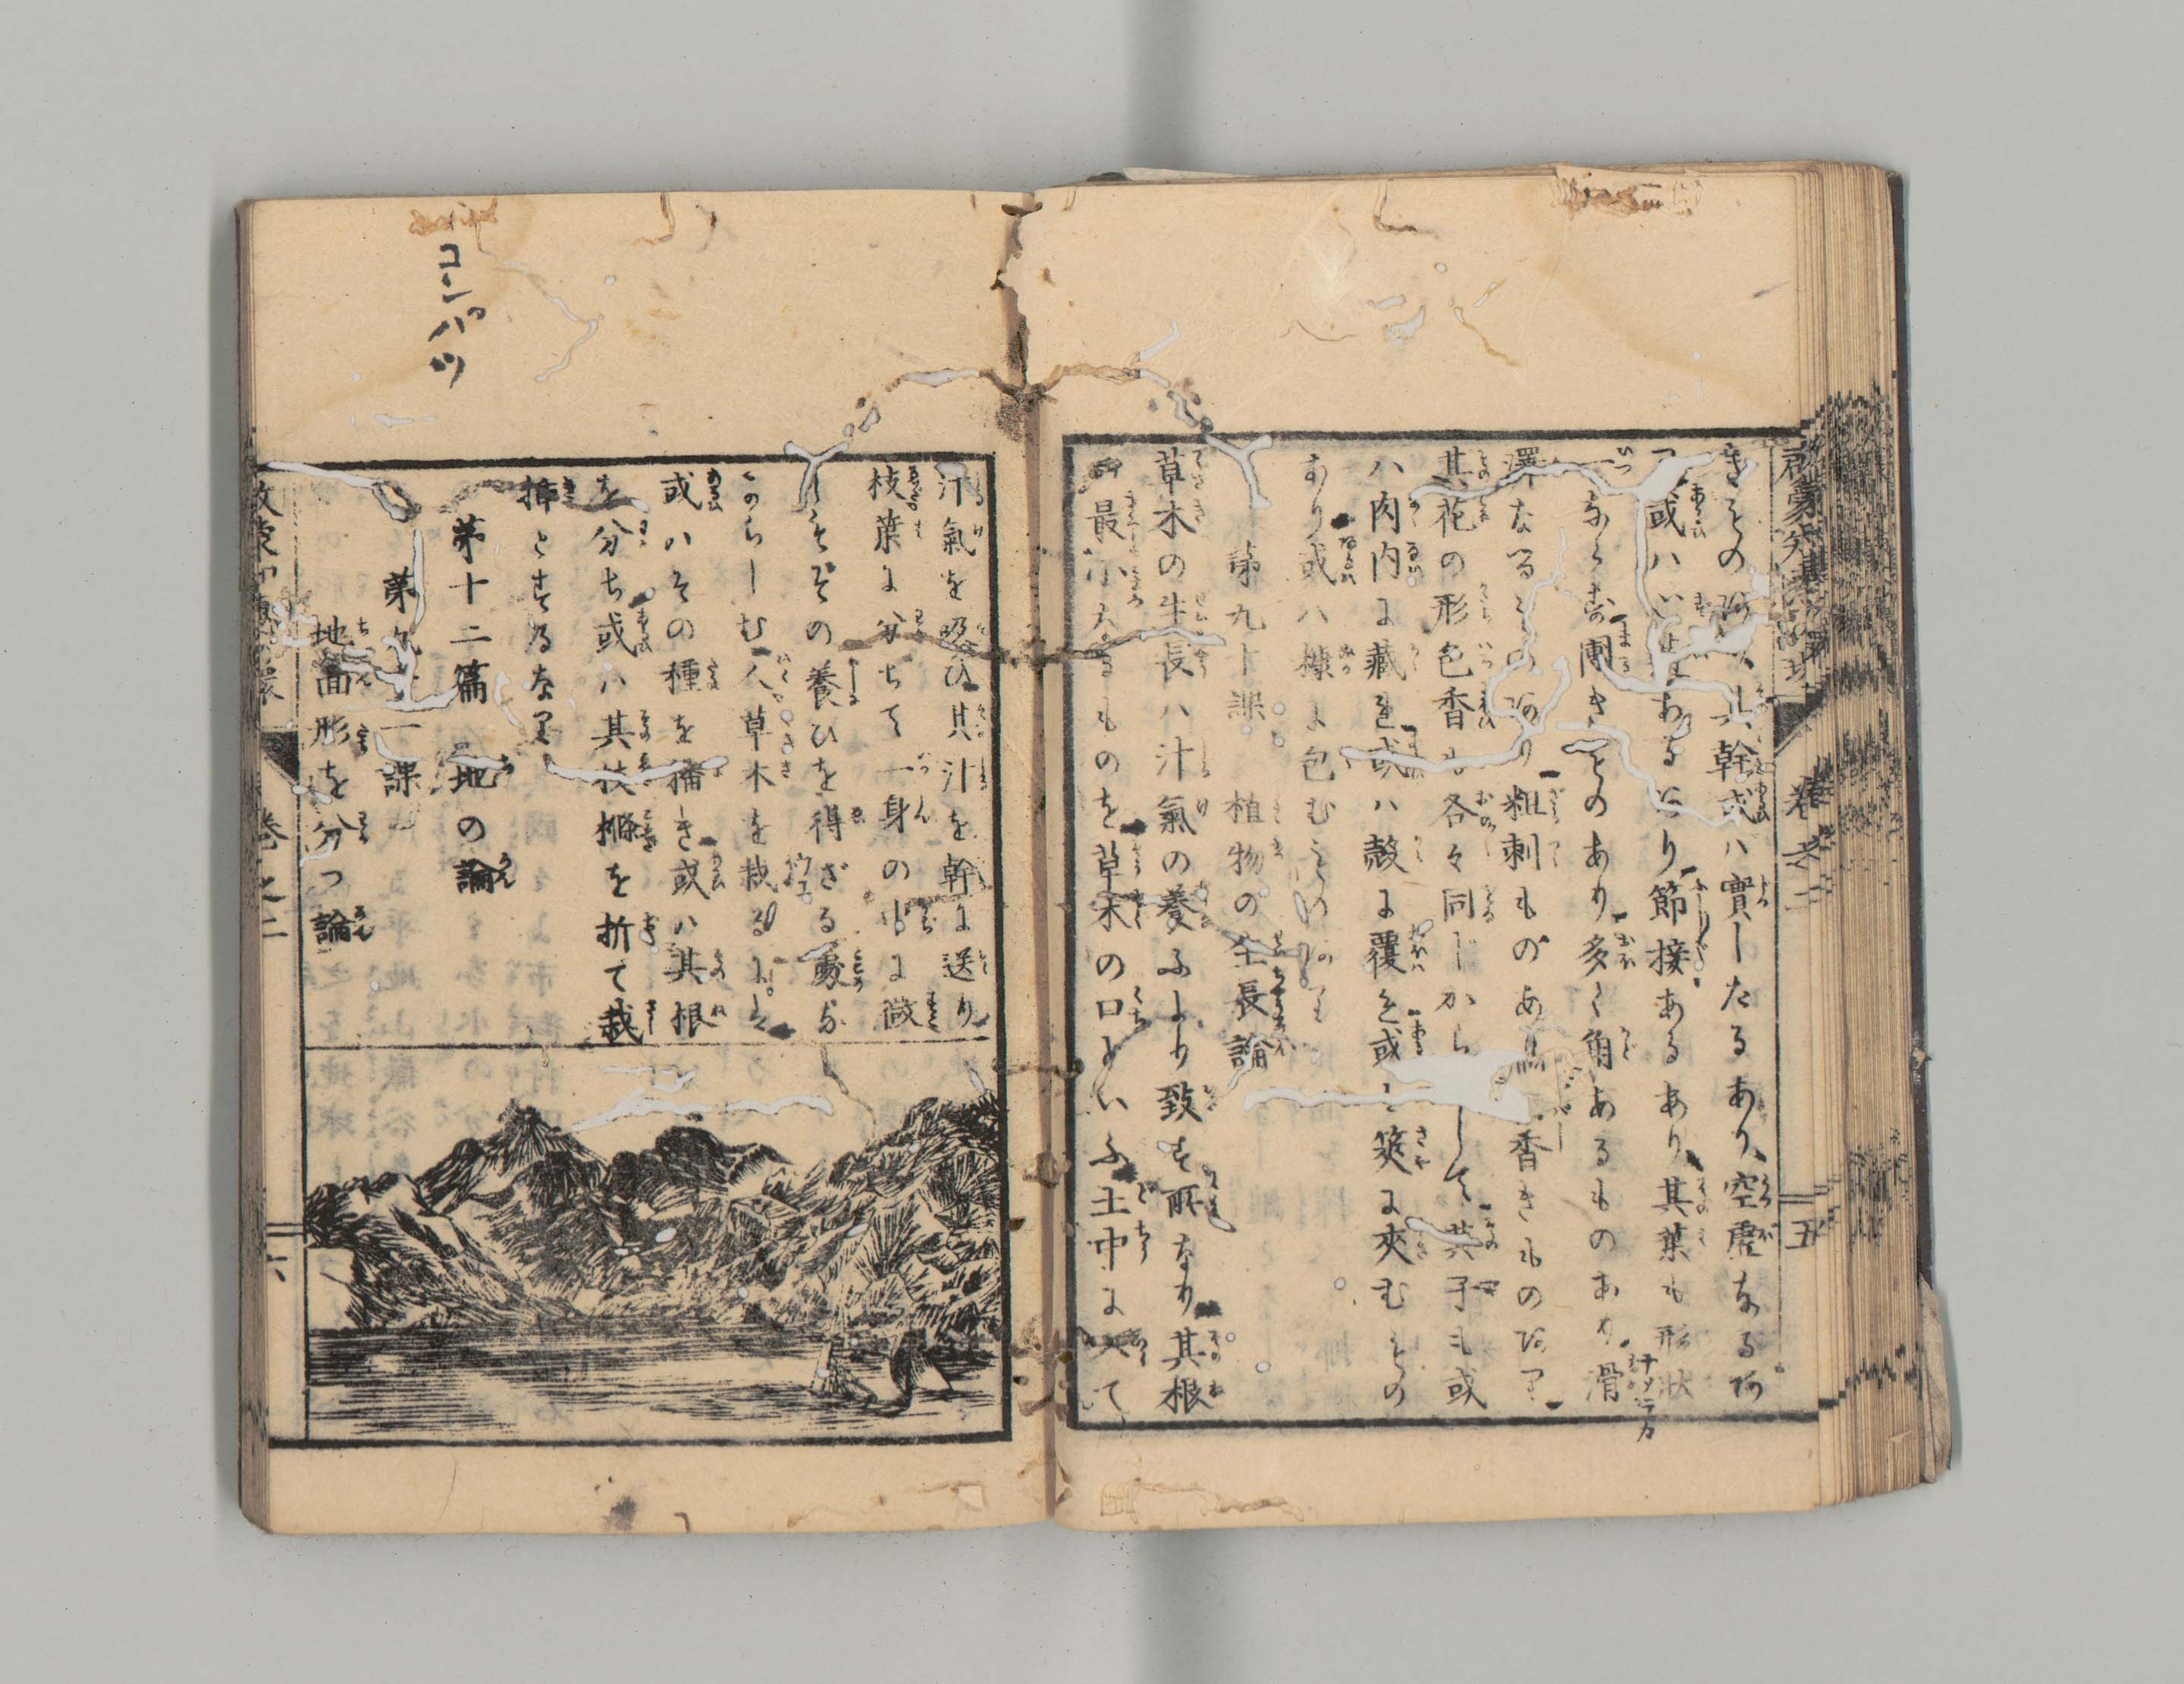 きもの阿り其幹或ハ實したるあり空虚なる阿
り或ハいぼあるあり節接あるあり其葉も形狀
一ならず團きものあり多く角あるものあり滑
澤なるもの阿り粗刺ものあり香きもの阿り
其花の形色香も各々同じからずして其子も或
ハ肉内に藏れ或ハ殼に覆ひ或は莢に夾むもの
あり或ハ檪に包むもの阿り
第九十課 植物の生長論
草木の生長ハ汁氣の養ふより致す所なり其根
の最小なるものを草木の口といふ土中に入て
啓蒙知恵乃環 卷之二 五
汁氣を吸ひ其汁を幹に送り
枝葉に分ちて一身の内に徴
しもその養ひを得ざる處な
からしむ人草木を栽るにハ
或ハその種を播き或ハ其根
を分ち或ハ其枝椏を折て栽
揷とするなり
第十二篇 地の論
第九十一課
地面形を分つ論
コンパツ
卷之二
六